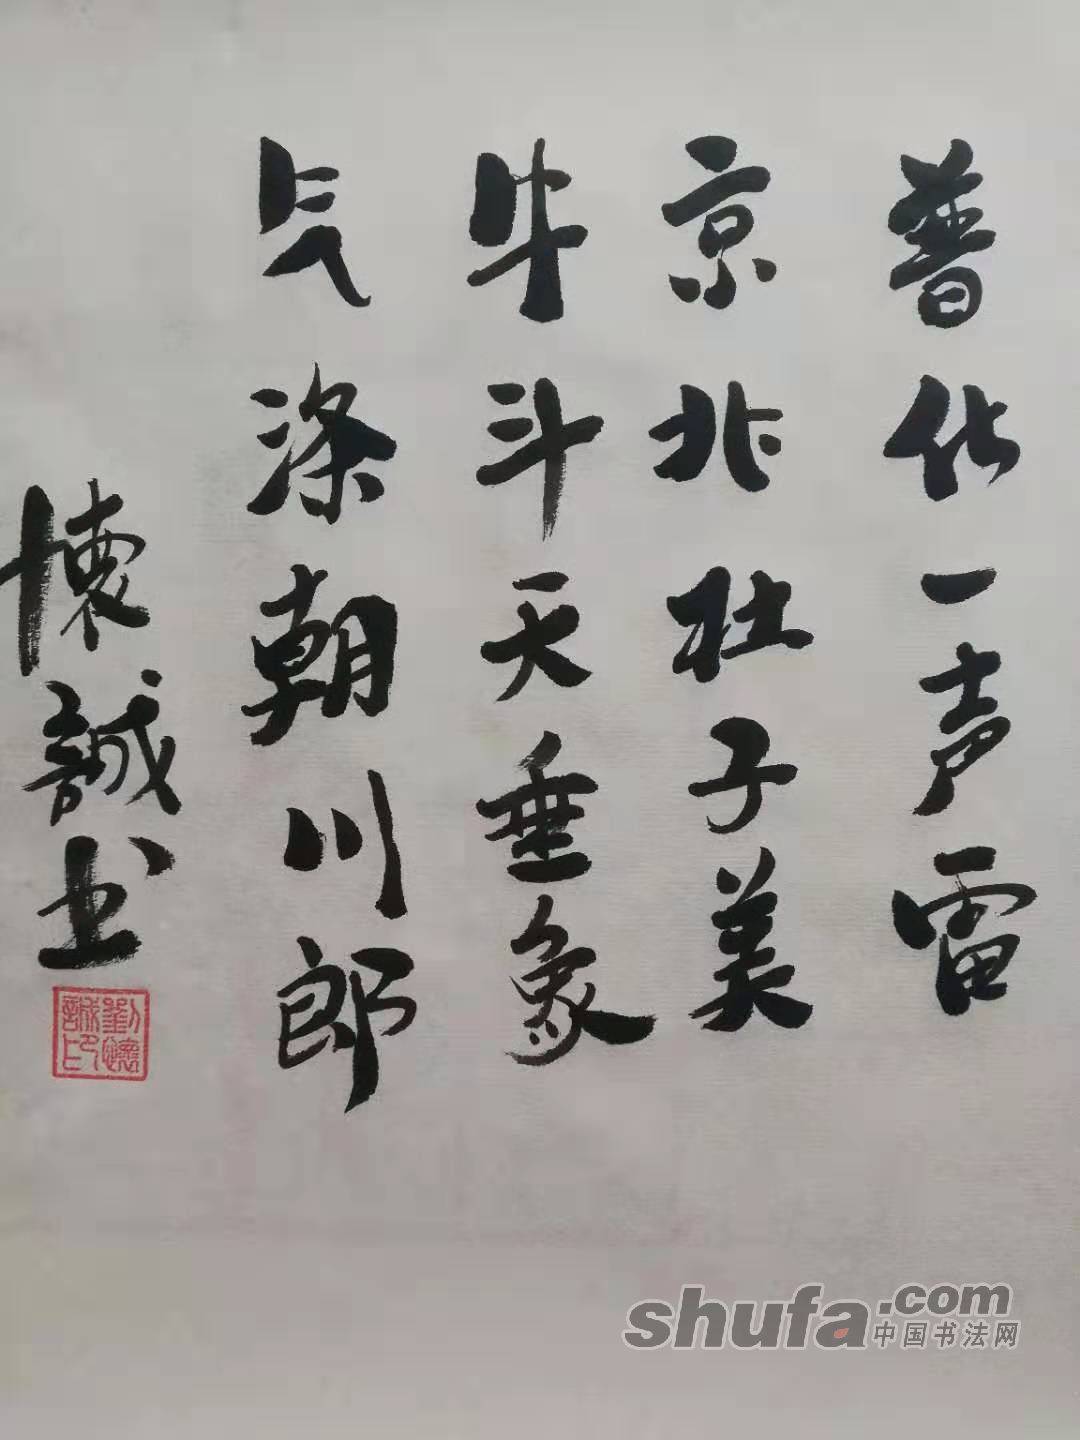 普化一声雷
京兆杜子美
牛斗天垂象
气涤朝川郎
懷誠书
劉懷誠印
shufa.com
中国书法网